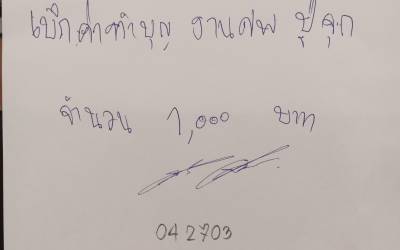 เบิกค่าทำบุญ งานศพ ปู่จุก
จำนวน 1,000 บาท
042703